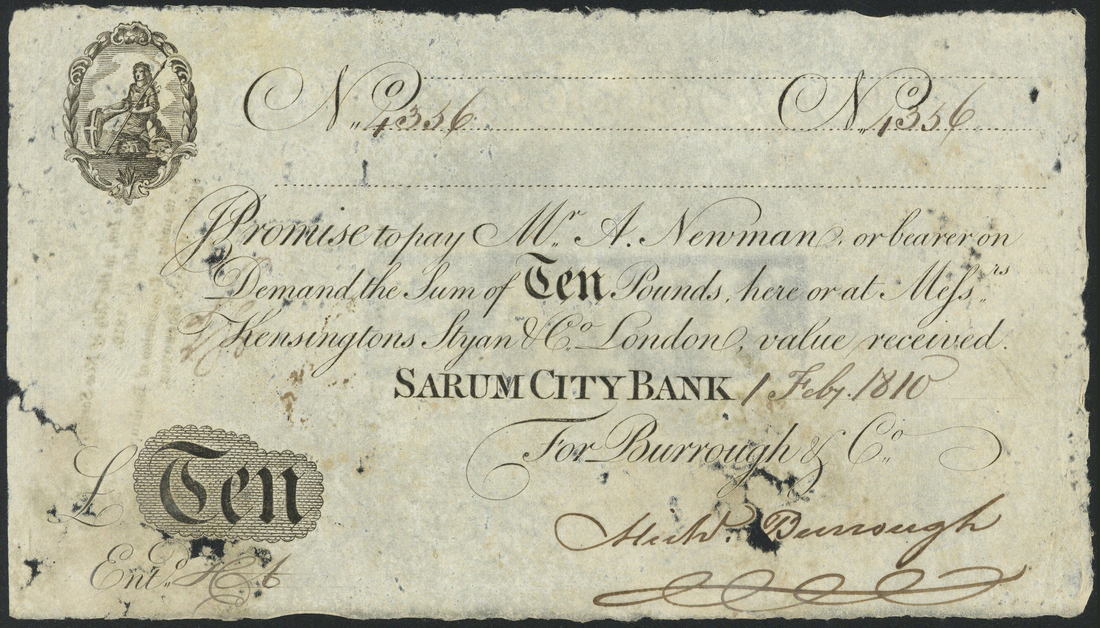 No. 4356 No. 4356
I Promise to pay Mr. A. Newman, or bearer on
Demand the Sum of Ten Pounds, here or at Messrs.
Kensingtons Styan & Co. London, value received.
SARUM CITY BANK 1 Feby. 1810
For Burrough & Co.
£ Ten
Burrough
Entd.